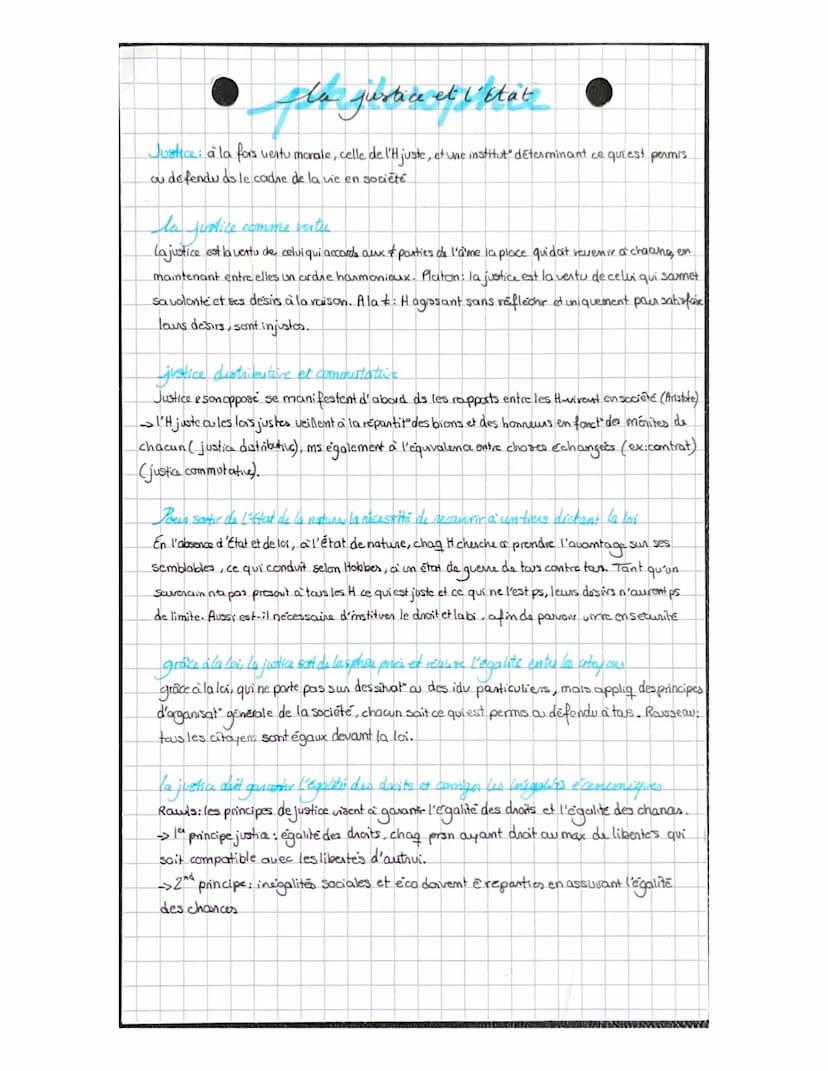 philosophie
la justice et l'État
Justice: à la fois vertu morale, celle de l'H juste, et une institut° déterminant ce qui est permis
ou défendu ds le cadre de la vie en société
la justice comme vertu
la justice est la vertu de celui qui accorde aux ≠ parties de l'âme la place qui doit revenir à chacune, en
maintenant entre elles un ordre harmonieux. Platon: la justice est la vertu de celui qui soumet
sa volonté et ses désirs à la raison. A la ≠: H agissant sans réfléchir et uniquement pour satisfaire
leurs désirs, sont injustes.
justice distributive et commutative
Justice e son opposé se manifestent d'abord ds les rapports entre les H vivent en société (Aristote)
→ l'H juste ou les lois justes veillent à la répartit° des biens et des honneurs en fonct° des mérites de
chacun (justice distributive), ms également à l'équivalence entre choses échangées (ex: contrat)
(justice commutative).
Pour sortir de l'État de la nature, la nécessité de recourir à un tiers dictant la loi
En l'absence d'État et de loi, à l'état de nature, chaq H cherche à prendre l'avantage sur ses
semblables, ce qui conduit selon Hobbes, à un état de guerre de tous contre tous. Tant qu'un
souverain n'a pas prescrit à tous les H ce qui est juste et ce qui ne l'est ps, leurs désirs n'auront ps
de limite. Aussi est-il nécessaire d'instituer le droit et la loi, afin de pouvoir vivre en sécurité
grâce à la loi, la justice sort de la sphère privée et réalise l'égalité entre les citoyens
grâce à la loi, qui ne porte pas sur des situat° ou des idv particuliers, mais appliq des principes
d'organisat° générale de la société, chacun sait ce qui est permis ou défendu à tous. Rousseau:
tous les citoyens sont égaux devant la loi.
la justice doit garantir l'égalité des droits et corriger les inégalités économiques
Rawls: les principes de justice visent à garantir l'égalité des droits et l'égalité des chances.
→ 1er principe justice: égalité des droits, chaq prsn ayant droit au max de libertés qui
soit compatible avec les libertés d'autrui.
→ 2nd principe: inégalités sociales et éco doivent ê reparties en assurant l'égalité
des chances